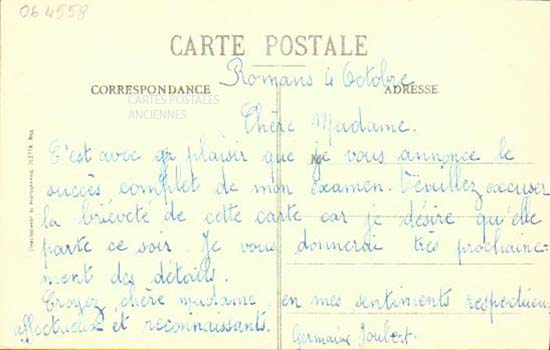 064558
CARTE POSTALE
Romans 4 Octobre
CORRESPONDANCE
ADRESSE
CARTES POSTALES
ANCIENNES
Chère Madame.
C'est avec gr plaisir que je vous annonce le
succès complet de mon examen. Veuillez excuser
la brièveté de cette carte car je désire qu'elle
parte ce soir. Je vous donnerai très prochaine-
ment des détails.
Croyez, chère madame, en mes sentiments respectueux,
affectueux et reconnaissants.
Germaine Joubert.